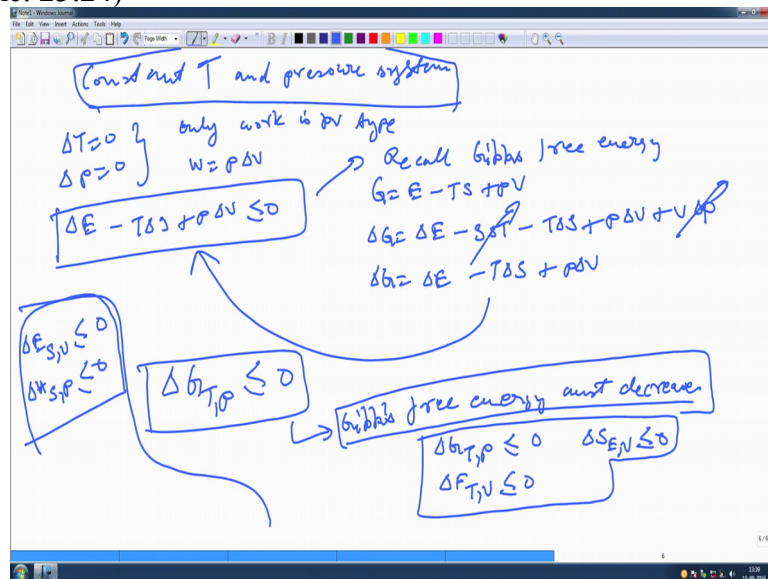 Note1 - Windows Journal
File Edit View Insert Actions Tools Help
Page Width
Constant T and pressure system
ΔT=0
ΔP=0
only work is PV type
W= PΔV
ΔE - TΔS + PΔV ≤0
Recall Gibbs free energy
G= E - TS + PV
ΔG= ΔE - SΔT - TΔS + PΔV + VΔP
ΔG= ΔE - TΔS + PΔV
ΔE S,V ≤ 0
ΔH S,P ≤ 0
ΔG T,P ≤ 0
Gibbs free energy must decrease
ΔG T,P ≤ 0 ΔS E,V ≤ 0
ΔF T,V ≤ 0
6/6
6
13:39